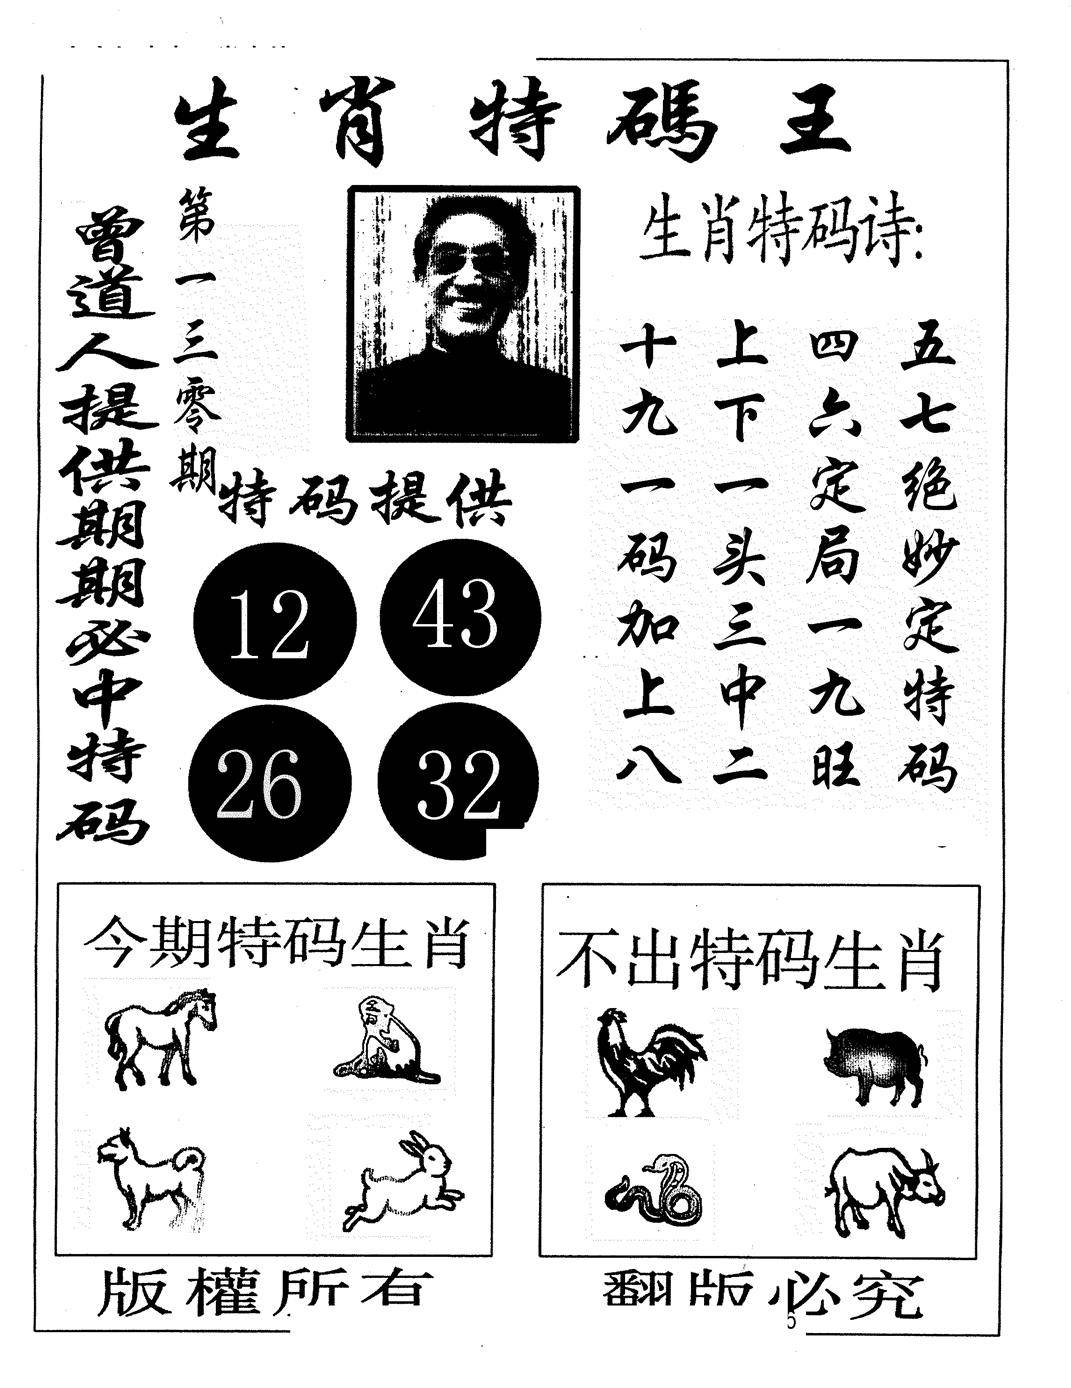 生肖特碼王
曾道人提供期期必中特码
第一三零期
生肖特码诗:
五七绝妙定特码
四六定局一九旺
上下一头三中二
十九一码加上八
特码提供
12 43
26 32
今期特码生肖
不出特码生肖
版權所有
翻版必究
5